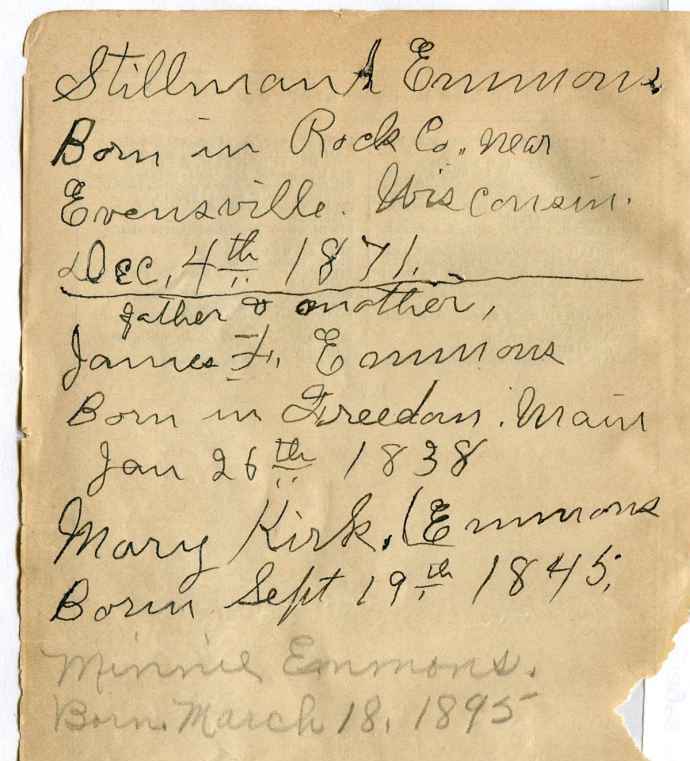 Stillman A Emmons
Born in Rock Co. near
Evensville. Wisconsin.
Dec. 4th 1871.
father & mother,
James F. Emmons
Born in Freedom. Main
Jan 26th 1838
Mary Kirk. (Emmons
Born Sept 19th 1845.
Minnie Emmons.
Born. March 18, 1895